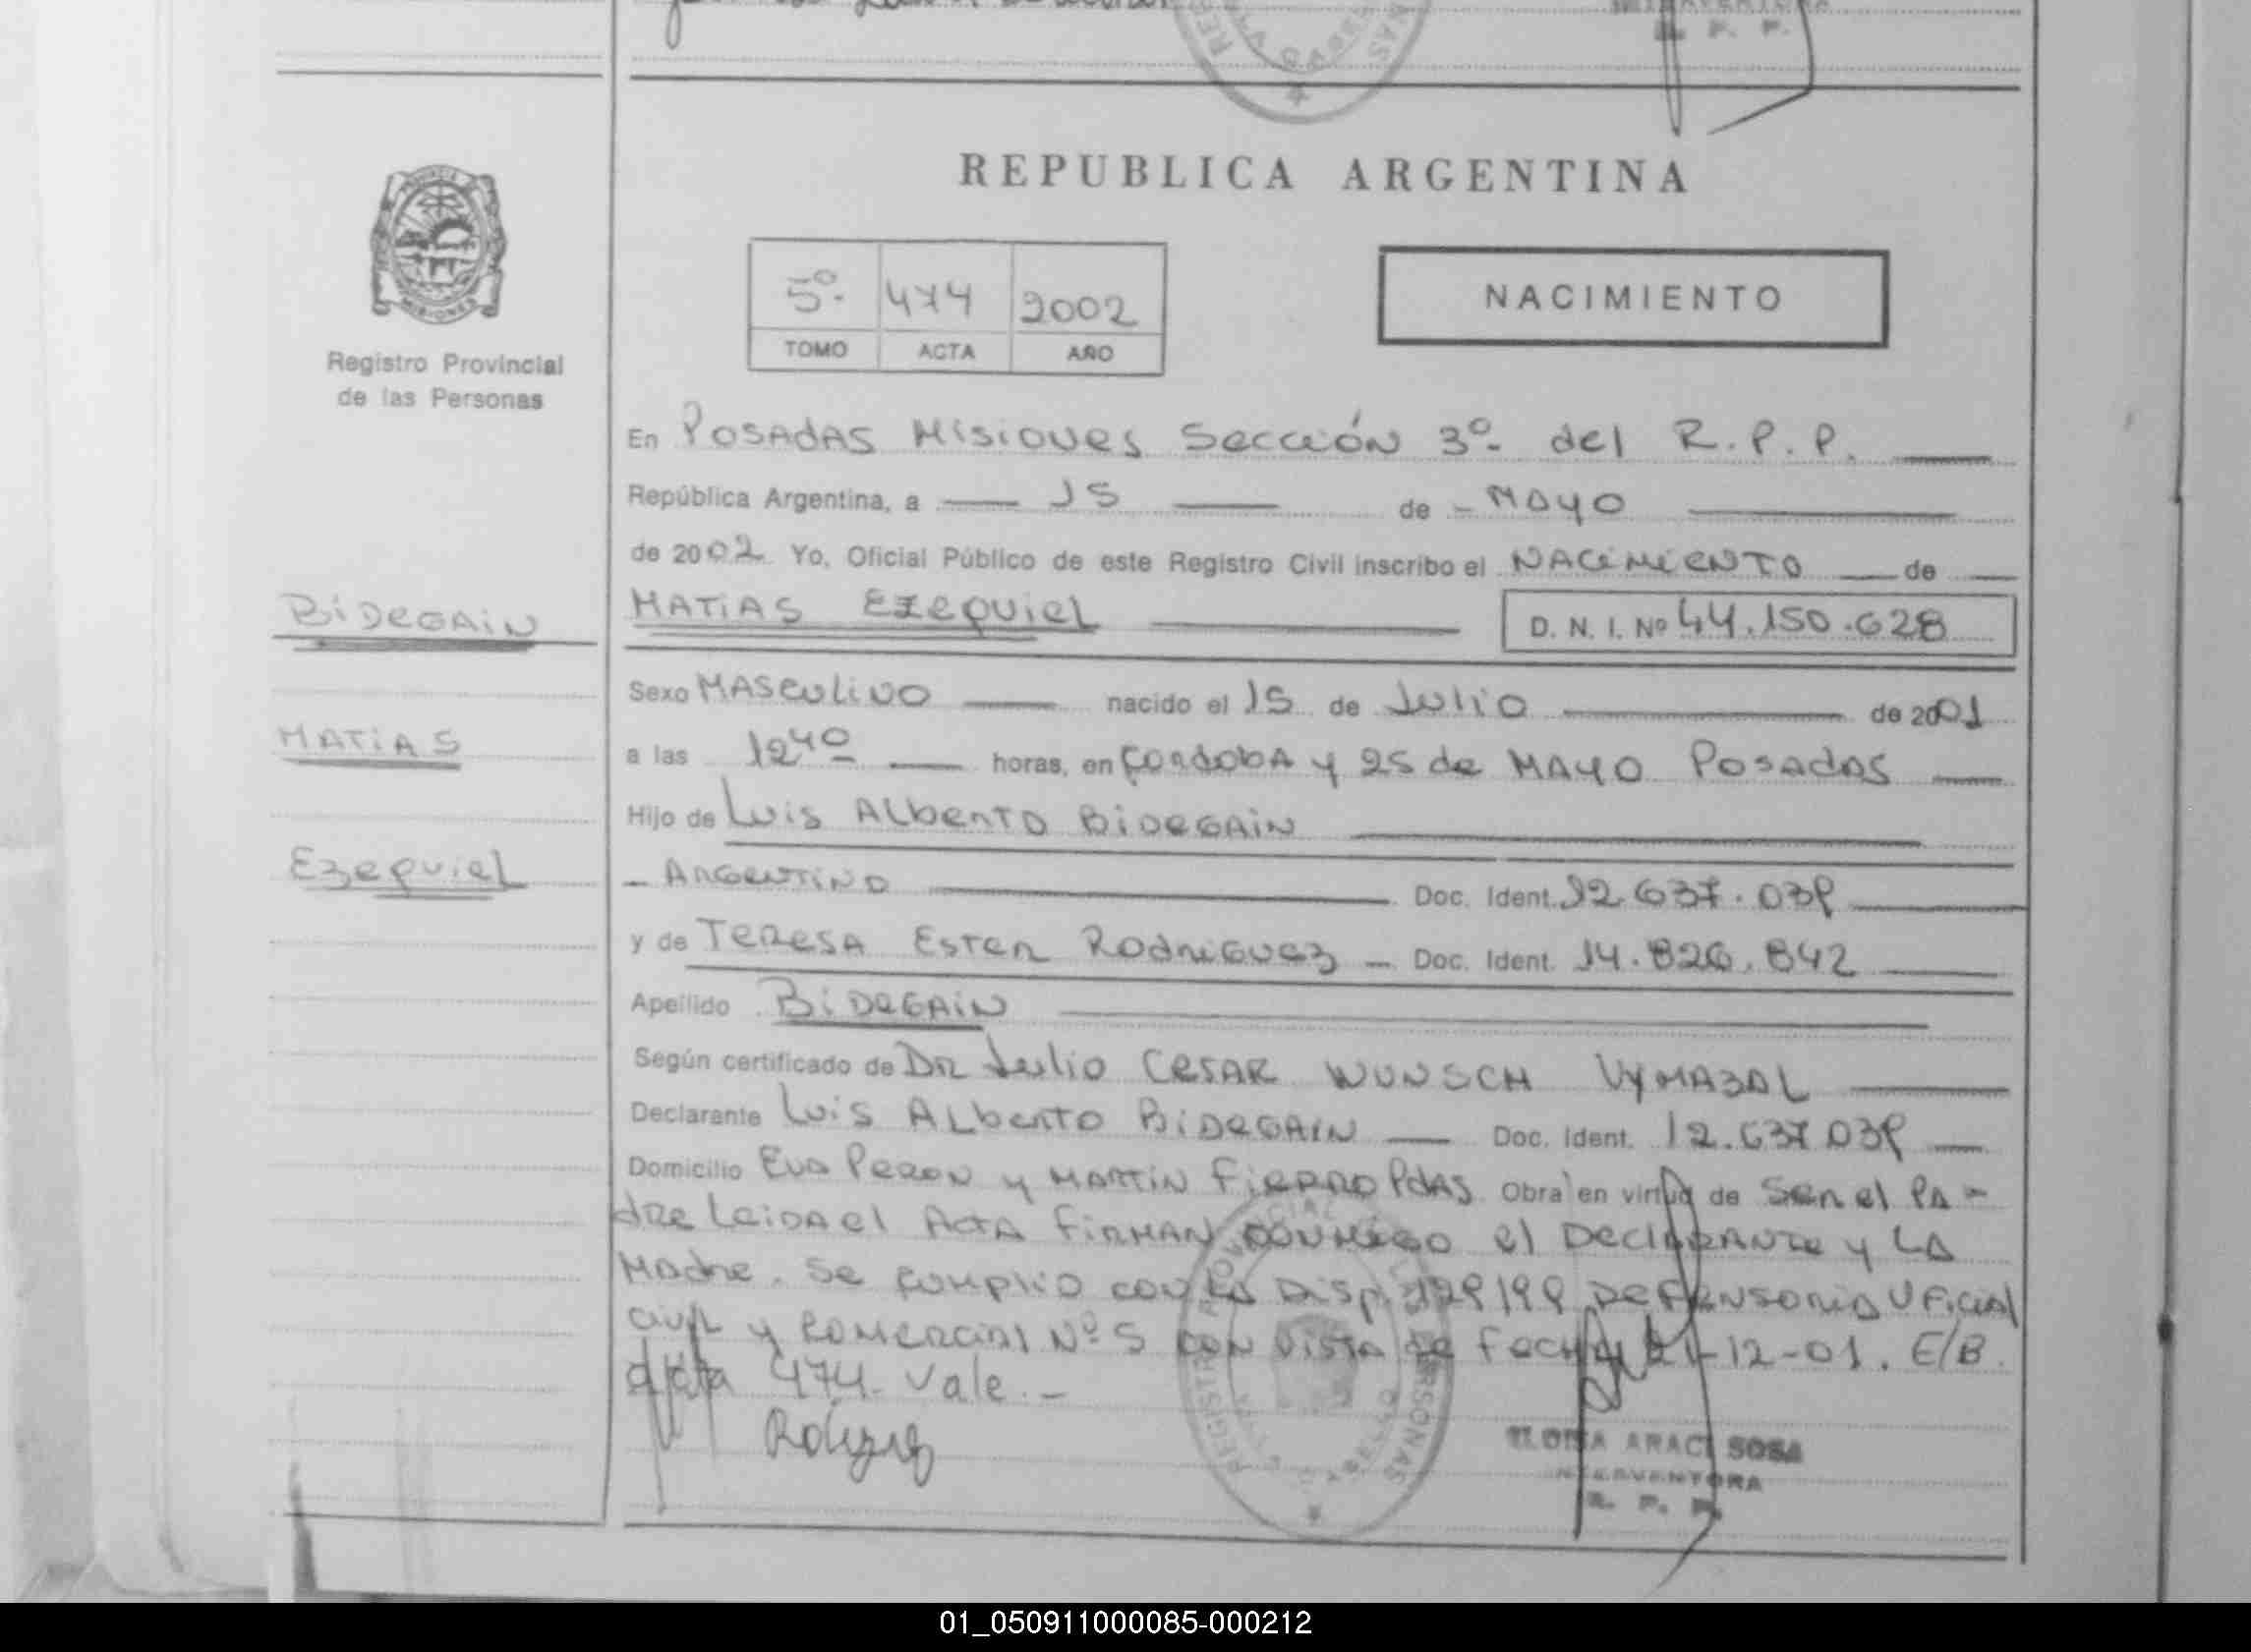 REPUBLICA ARGENTINA
5º 474 2002
TOMO ACTA AÑO
NACIMIENTO
Registro Provincial
de las Personas
BiDEGAiN
MATiAS
Ezequiel
En POSADAS Misiones Sección 3º del R.P.P.
República Argentina, a 15 de MAYO
de 2002 Yo, Oficial Público de este Registro Civil inscribo el NACiMiENTO de
MATiAS EzequieL D. N. I. Nº 44.150.628
Sexo MASCULiNO nacido el 15 de Julio de 2001
a las 12 40 horas, en CORDOBA y 25 de MAYO POSADAS
Hijo de Luis ALBERTO BiDEGAiN
ARGENTiNO Doc. Ident. 12.637.039
y de TERESA ESTER RODRiGUEZ Doc. Ident. 14.826.842
Apellido BiDEGAiN
Según certificado de DR Julio CESAR WUNSCH VYMAZAL
Declarante Luis ALBERTO BiDEGAiN Doc. Ident. 12.637.039
Domicilio EVA PERON y MARTiN FiERRO PDAS. Obra en virtud de Ser el PA-
dre Leida el ActA FiRMAN CONMIGO el DeclARANTe y LA
MAdre. Se CUMPLIO CON LA Disp. 129/99 DEFENSORIA OFicial
Civil y COMERCIAL Nº 5 CON VISTA de Fecha 21-12-01. E/B.
Acta 474. Vale.-
ARACI SOSA
INTERVENTORA
R. P. P.
01_050911000085-000212